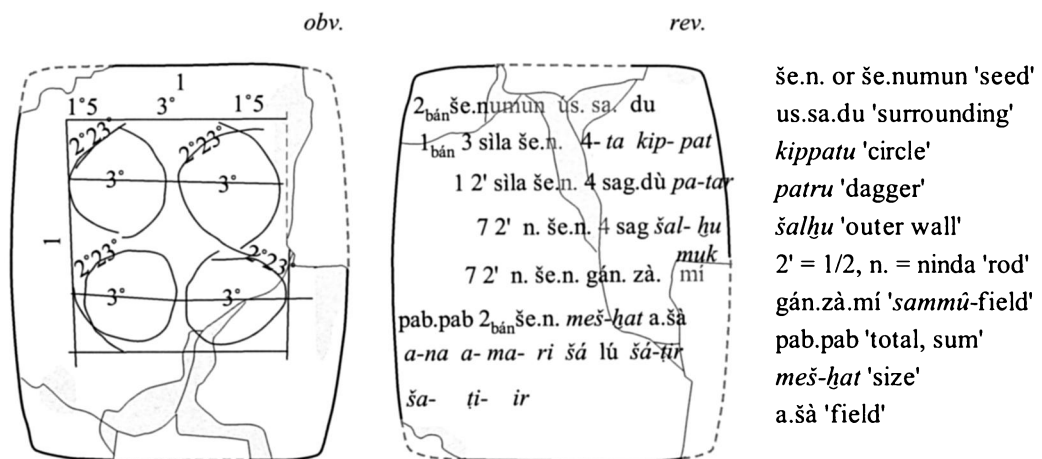 obv.
1
1°5 3° 1°5
2°23° 2°23°
3° 3°
1
2°23° 2°23°
3° 3°
rev.
2bán še.numun ús. sa. du
1bán 3 sìla še.n. 4- ta kip- pat
1 2' sìla še.n. 4 sag.dù pa-tar
7 2' n. še.n. 4 sag šal- ḫu
muk
7 2' n. še.n. gán. zà. mí
pab.pab 2bán še.n. meš-ḫat a.šà
a-na a- ma- ri šá lú šá-ṭir
ša- ṭi- ir
še.n. or še.numun 'seed'
us.sa.du 'surrounding'
kippatu 'circle'
patru 'dagger'
šalḫu 'outer wall'
2' = 1/2, n. = ninda 'rod'
gán.zà.mí 'sammû-field'
pab.pab 'total, sum'
meš-ḫat 'size'
a.šà 'field'